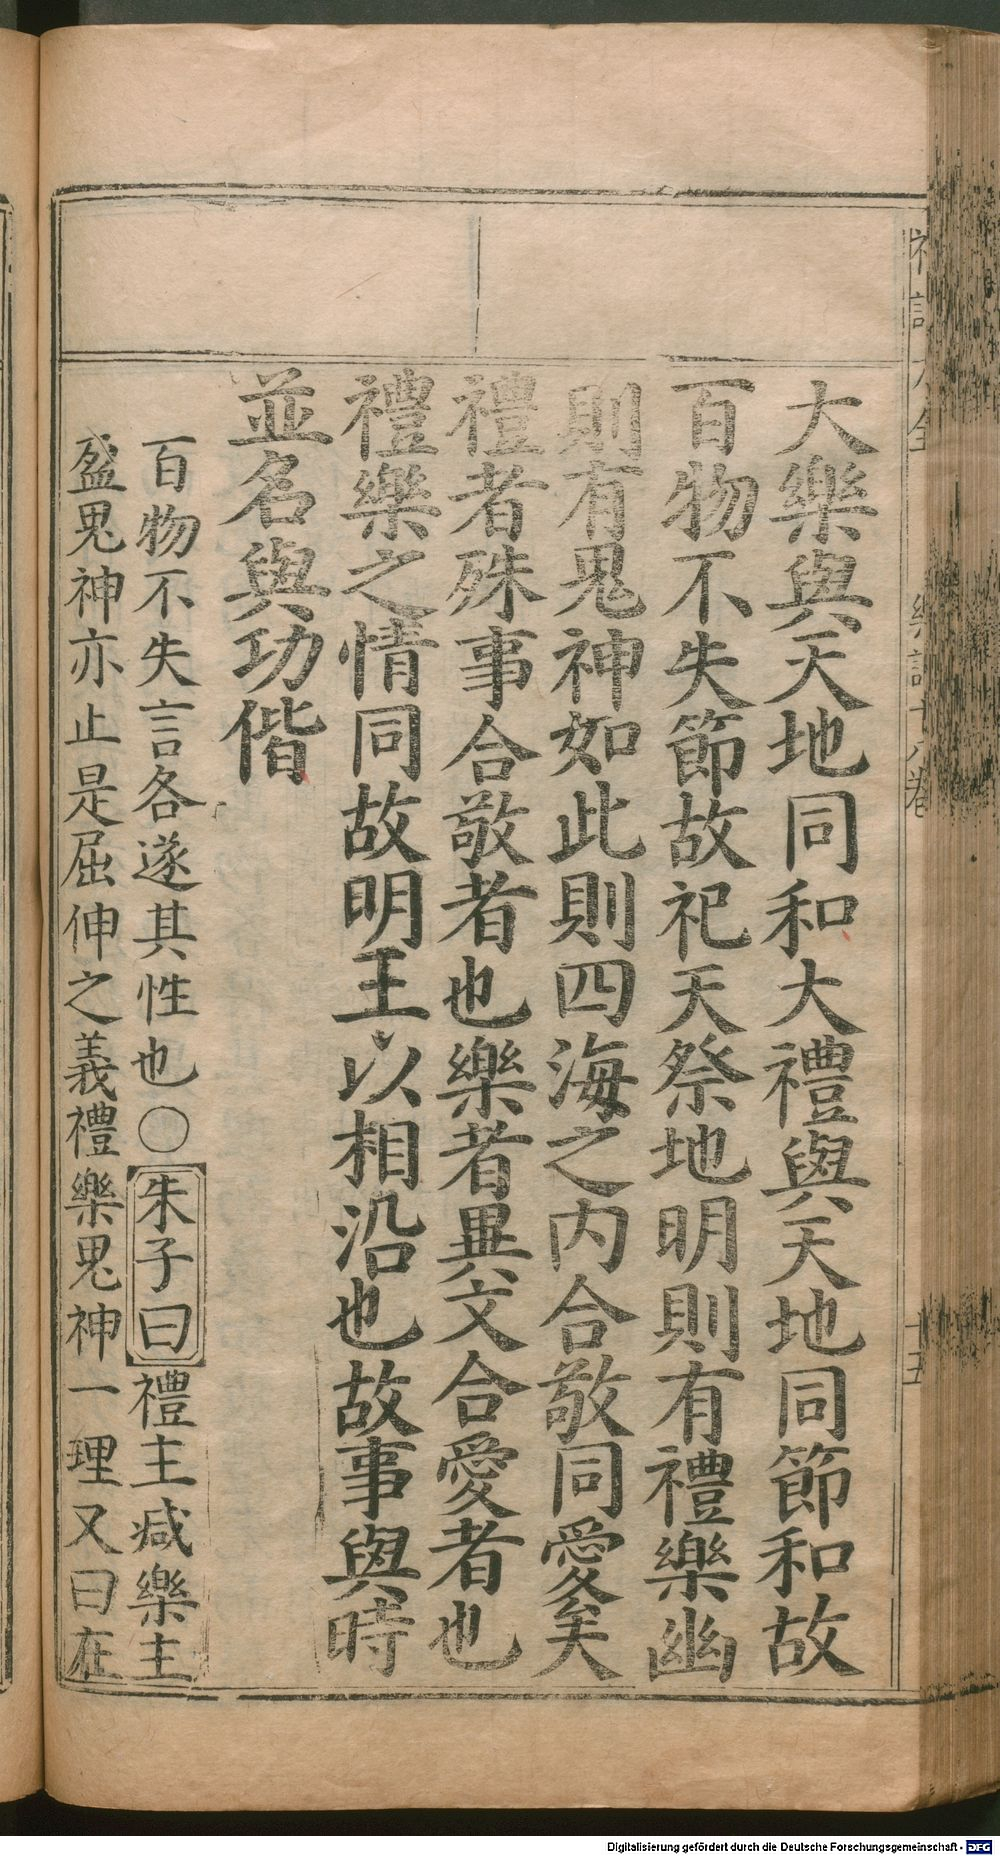 大樂與天地同和大禮與天地同節和故
百物不失節故祀天祭地明則有禮樂幽
則有鬼神如此則四海之内合敬同愛矣
禮者殊事合敬者也樂者異文合愛者也
禮樂之情同故明王以相沿也故事與時
並名與功偕
百物不失言各遂其性也○朱子曰禮主減樂主
盈鬼神亦止是屈伸之義禮樂鬼神一理又曰在
十五
Digitalisierung gefördert durch die Deutsche Forschungsgemeinschaft - DFG